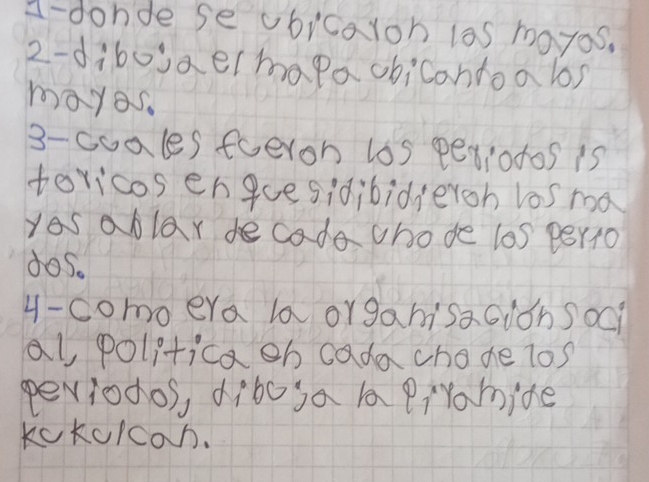 1-donde se ubicaron los mayas.
2-dibuja el mapa ubicando a los
mayas.
3-cuales fueron los periodos is
toricos en que sidibidieron los ma
yas ablar de cada uno de los perio
dos.
4-como era la organisación soci
al, politica en cada uno de los
periodos, dibuja la piramide
kukulcan.